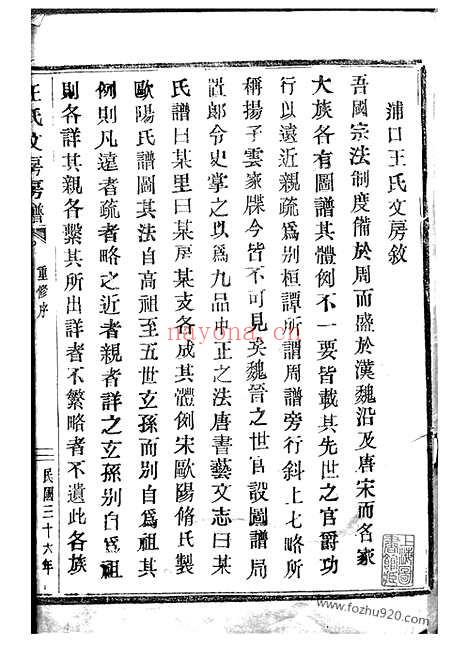 浦口王氏文房敘
吾國宗法制度備於周而盛於漢魏沿及唐宋而名家
大族各有圖譜其體例不一要皆載其先世之官爵功
行以遠近親疏爲別桓譚所謂周譜旁行斜上七略所
稱揚子雲家牒今皆不可見矣魏晉之世官設圖譜局
置郎令史掌之以爲九品中正之法唐書藝文志曰某
氏譜曰某里曰某房某支各成其體例宋歐陽脩氏製
歐陽氏譜圖其法自高祖至五世玄孫而別自爲祖其
例則凡遠者疏者略之近者親者詳之玄孫別自爲祖
則各詳其親各繫其所出詳者不繁略者不遺此各族
王氏文房房譜
重修序
民國三十六年
上海圖書館藏
nayona.cn
www.fozhu920.com